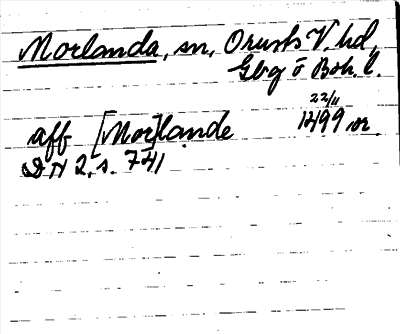 Morlanda, sn, Orusts V. hd,
Gbg o Boh. l.
22/11
aff [Mor]lande 1499 or.
DN 2, s. 741